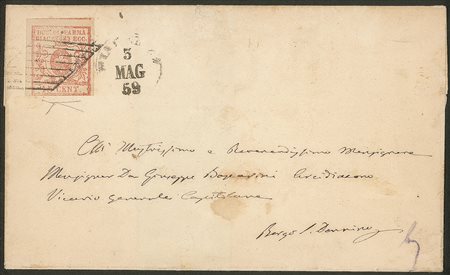 DUC. DI PARMA
PIACENZA ECC.
CENT.
3
MAG
59
All' Illustrissimo e Reverendissimo Monsignore
Monsignor Don Giuseppe Arcidiacono
Vicario generale Capitolare
Borgo S. Donnino